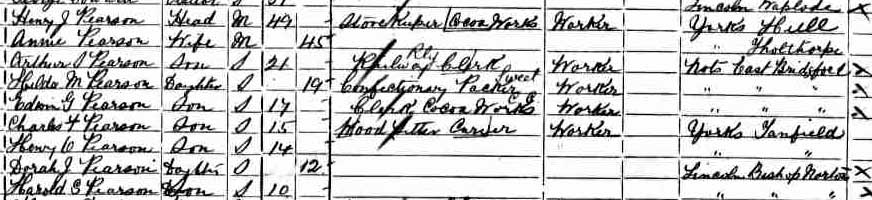 Lincoln Waplode X
Henry J Pearson Head M 49 Storekeeper Cocoa Works Worker Yorks Hull
Annie Pearson Wife M 45 " Tholthorpe
Arthur S Pearson Son S 21 Railway Clerk Rly Worker Nots East Bridgford X
Hilda M Pearson Daughter S 19 Confectionary Packer Sweet Worker " " " X
Edwin G Pearson Son S 17 Clerk Cocoa Works Worker " " " X
Charles F Pearson Son S 15 Wood Carver Worker Yorks Tanfield
Henry O Pearson Son S 14 " "
Dorah J Pearson Daughter S 12 Lincoln Bishop Norton X
Harold E Pearson Son S 10 " " " X